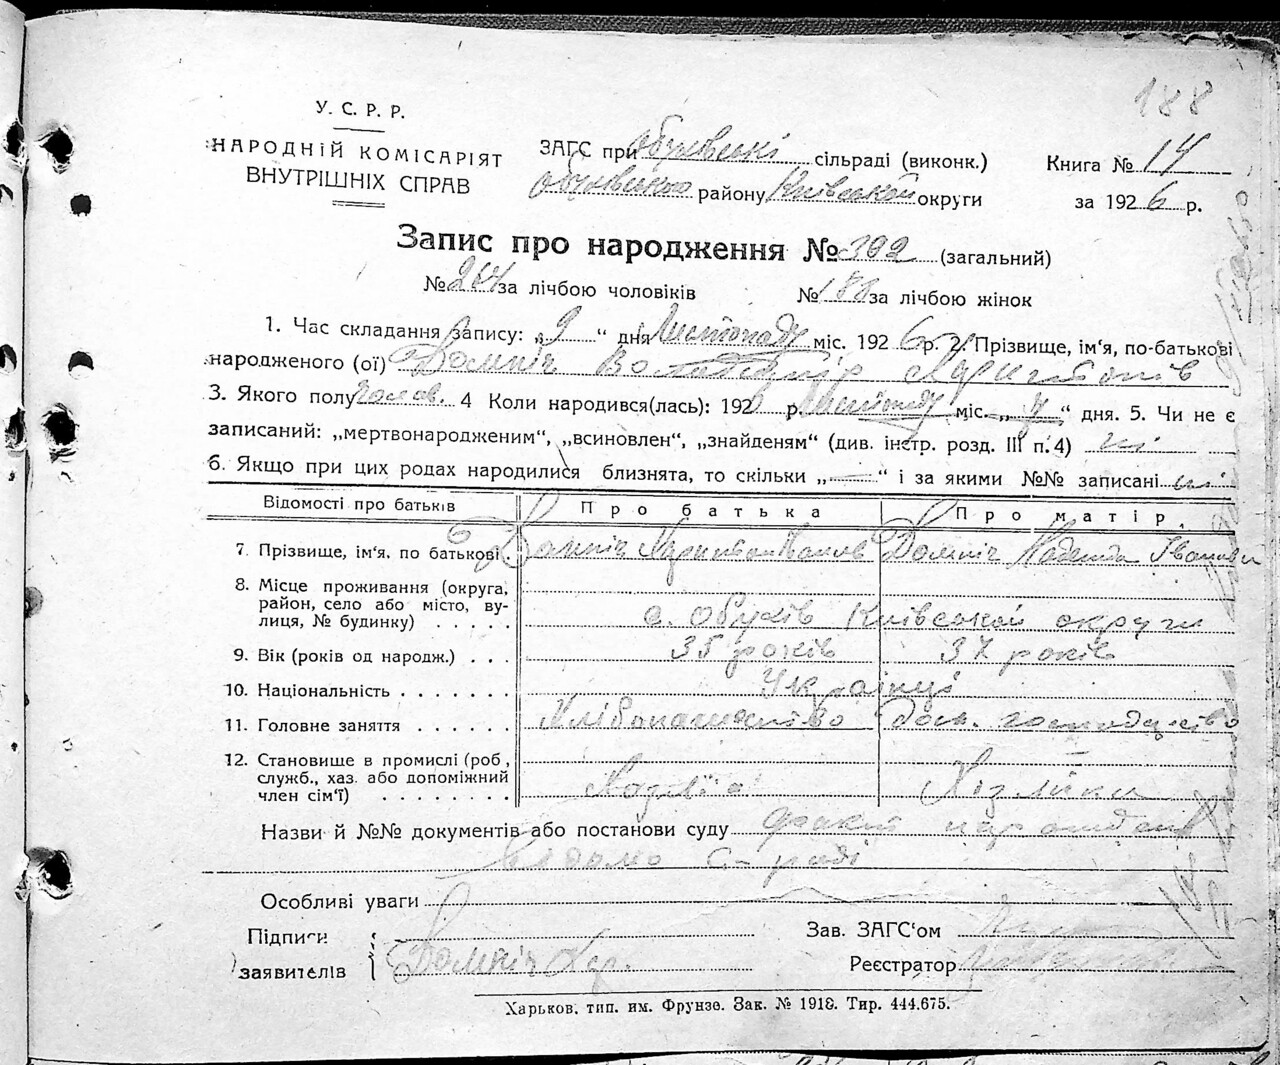 188
У. С. Р. Р.
НАРОДНІЙ КОМІСАРІЯТ
ВНУТРІШНІХ СПРАВ
ЗАГС при Обухівські сільраді (виконк.)
Обухівського району Київської округи
Книга № 14
за 1926 р.
Запис про народження № 392 (загальний)
№ 204 за лічбою чоловіків № 188 за лічбою жінок
1. Час складання запису: „9“ дня Листопаду міс. 1926 р. 2. Прізвище, ім'я, по-батькові
народженого (ої) Домпіч Володимир
3. Якого полу чолов. 4 Коли народився(лась): 192 р. Листопаду міс. „7“ дня. 5. Чи не є
записаний: „мертвонародженим“, „всиновлен“, „знайденям“ (див. інстр. розд. III п. 4) ні
6. Якщо при цих родах народилися близнята, то скільки „—“ і за якими №№ записані ні
Відомості про батьків Про батька Про матір
7. Прізвище, ім'я, по батькові. Домпіч Харитон Іванов Домпіч Надежда Іванови
8. Місце проживання (округа, район, село або місто, вулиця, № будинку) . . . . . с. Обухів Київської округи
9. Вік (років од народж.) . . . 35 років 37 років
10. Національність . . . . . . . Українці
11. Головне заняття . . . . . . Хлібопашество дом. господарство
12. Становище в промислі (роб., служб., хаз. або допоміжний член сім'ї) . . . . . . . . Хазяїн
Назви й №№ документів або постанови суду факт народження
відомо с-раді
Особливі уваги
Підписи
заявителів Домпіч Хар.
Зав. ЗАГС'ом
Реєстратор
Харьков, тип. им. Фрунзе. Зак. № 1918. Тир. 444.675.